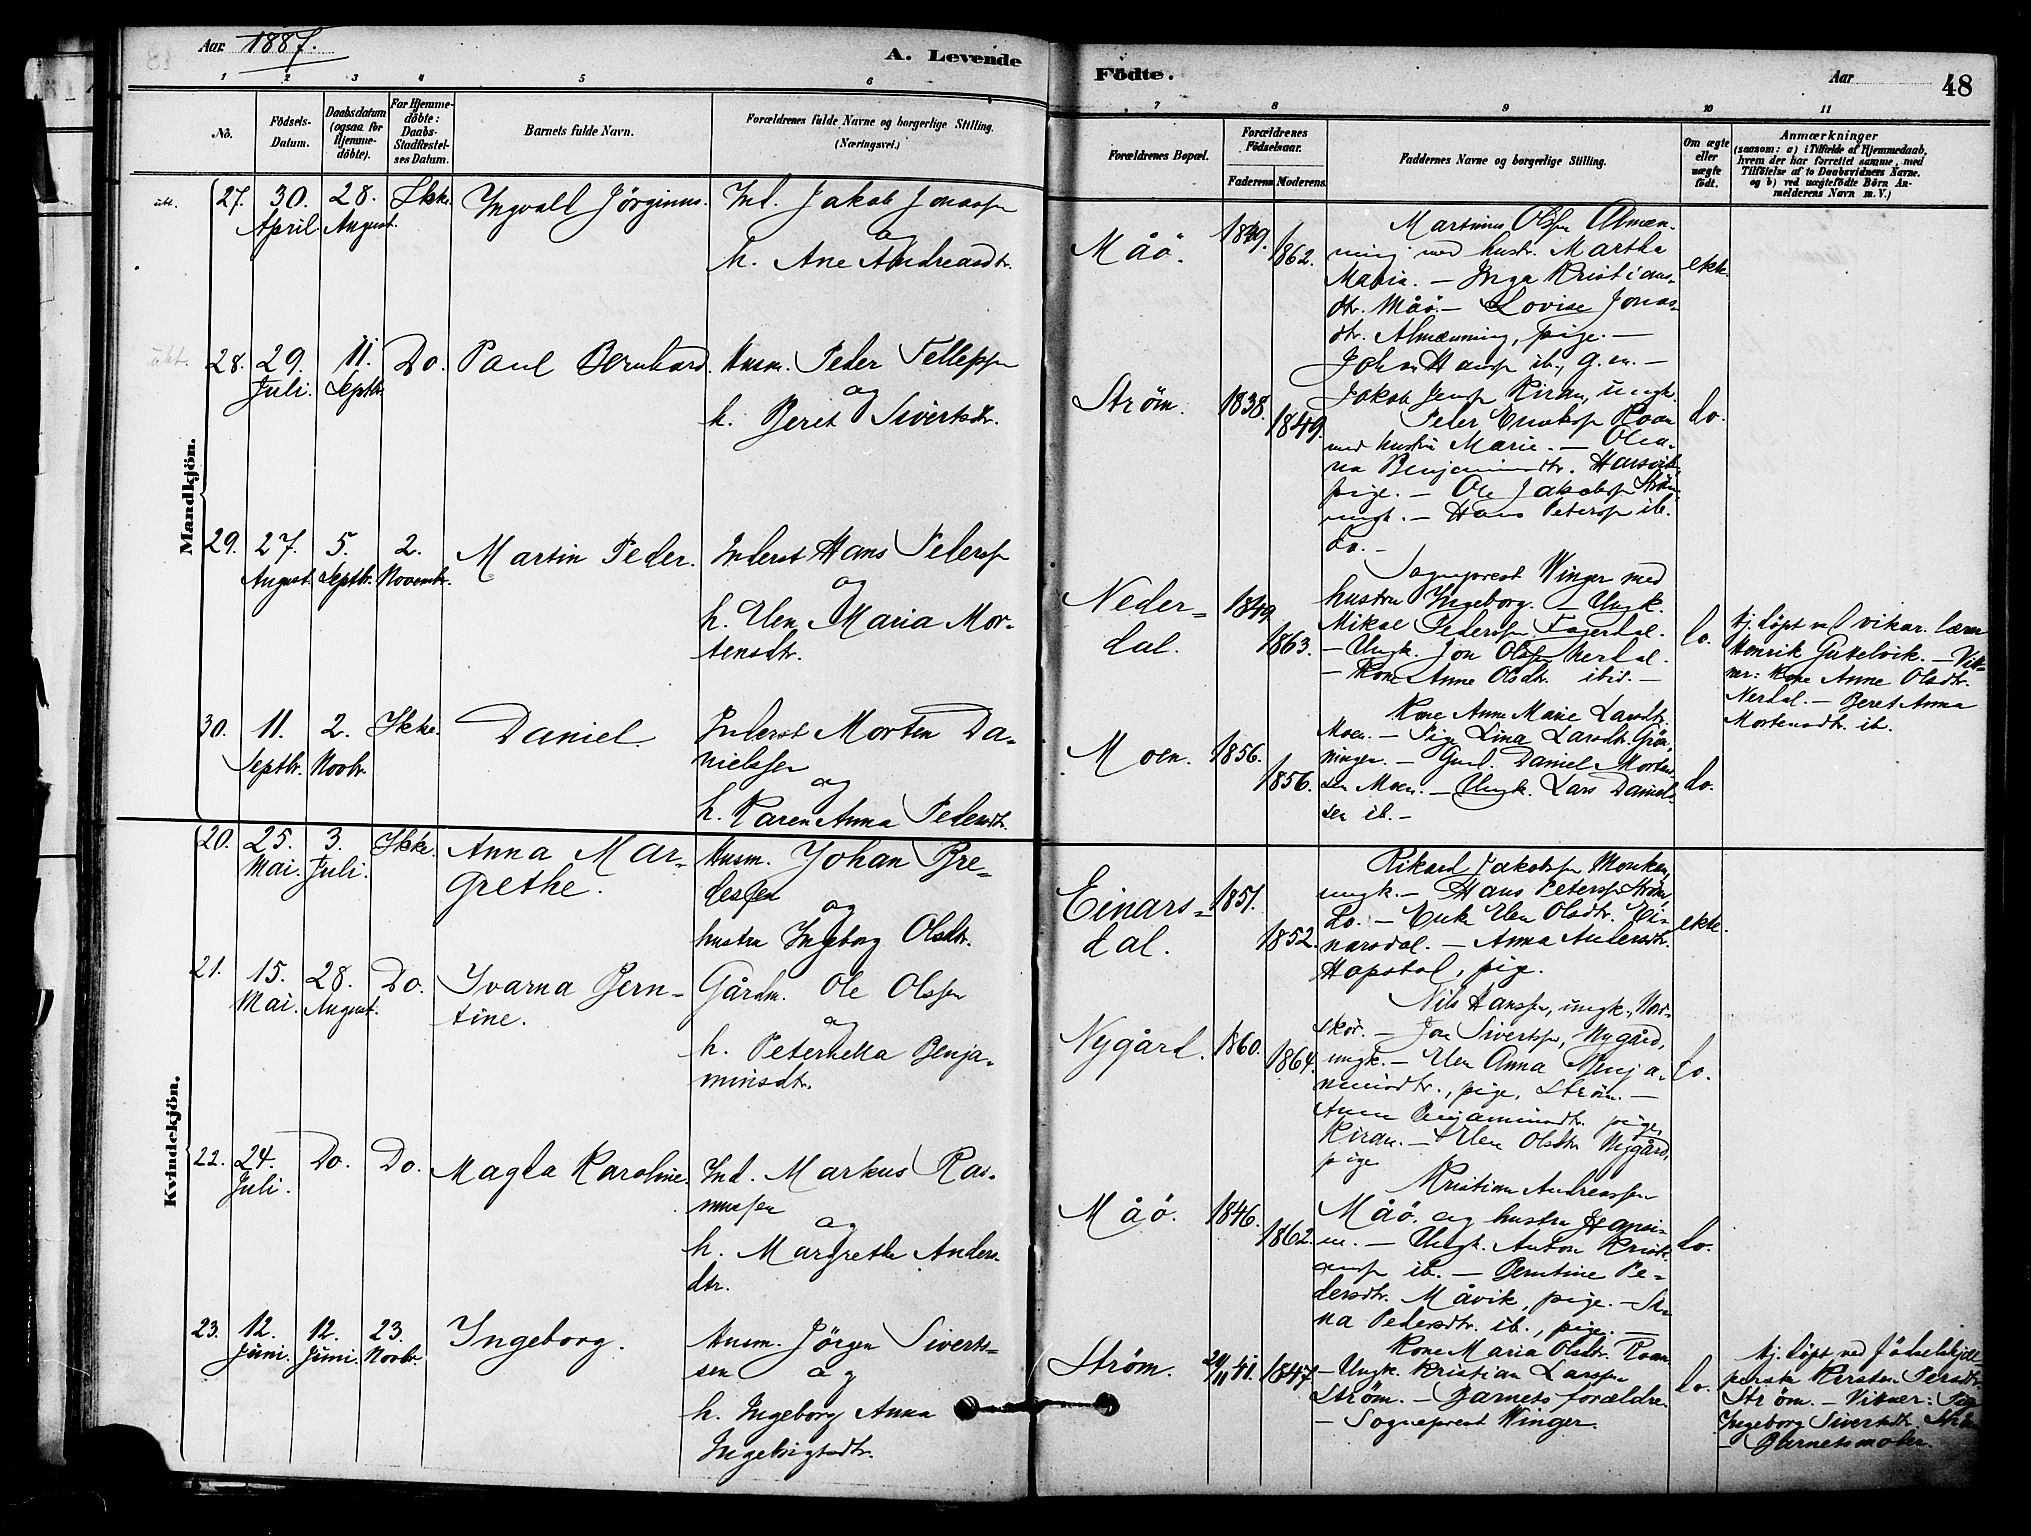 Aar 1887.
A. Levende
Födte.
Aar
48
1 2 3 4 5 6
7 8 9 10 11
No.
Födsels-
Datum.
Daabsdatum
(ogsaa for
Hjemme-
döbte).
For Hjemme-
döbte:
Daabs-
Stadfæstel-
ses Datum.
Barnets fulde Navn.
Forældrenes fulde Navne og borgerlige Stilling.
(Næringsvei.)
Forældrenes Bopæl.
Forældrenes
Födselsaar.
Faderens Moderens.
Faddernes Navne og borgerlige Stilling.
Om ægte
eller
uægte
födt.
Anmærkninger
(saasom: a) i Tilfælde af Hjemmedaab,
hvem der har forrettet samme, med
Tilföielse af to Daabsvidners Navne.
og b) ved uægtefödte Börn An-
melderens Navn m. V.)
Mandkjön.
27. 30. April. 28. August. Ikke. Ingvald Jörginus.
Ind. Jakob Jonassen
og
h. Ane Andreasdtr.
Måö. 1849. 1862.
Martinus Olsen Almæn-
ning med hustr. Martha
Maria. — Inga Kristians-
dtr. Måö. — Lovise Jonas-
dtr. Almænning, pige. —
Johan Hansen ib., g.m. —
Jakob Jensen Kiran, ungk.
ekte.
28. 29. Juli. 11. Septbr. Do. Paul Bernhard.
Husm. Peder Fellepsen
og
h. Beret Sivertsdtr.
Strøm. 1838. 1849.
Peder Eriksen Roan
med hustru Marie. — Olea-
na Benjaminsdtr. Harsvik,
pige. — Ole Jakobsen Strøm
ungk. — Hans Petersen ib.
do. —
do.
29. 27. August. 5. Septbr. 2. Novembr. Martin Peder.
Inderst Hans Pedersen
og
h. Elen Maria Mor-
tensdtr.
Neder-
dal. 1849 1863.
Sogneprest Winger med
hustru Ingeborg. — Ungk.
Mikal Pedersen Fagerdal.
— Ungk. Jon Olsen Nerdal.
— Kone Anne Olsdtr. ibid. —
do.
Hj. døpt ved vikar. lærer
Henrik Gutelvik. — Vit-
ner: Kone Anne Olsdtr.
Nerdal. — Beret Anna
Mortensdtr. ib.
30. 11. Septbr. 2. Novbr. Ikke. Daniel.
Inderst Morten Da-
nielsen
og
h. Karen Anna Pedersdtr.
Moen. 1856. 1856.
Kone Anne Marie Larsdtr.
Moen. — Pige Lina Larsdtr. Grøn-
ningen. — Gml. Daniel Morten-
sen Moen. — Ungk. Lars Daniel-
sen ib. —
do.
Kvindekjön.
20. 25. Mai. 3. Juli. Ikke. Anna Mar-
grethe.
Husm. Johan Bre-
desen
og
hustru Ingeborg Olsdtr.
Einars-
dal. 1851. 1852.
Rikard Jakobsen Monkan,
ungk. — Hans Petersen Strøm,
do. — Enk. Elen Olsdtr. Ei-
narsdal. — Anna Andersdtr.
Hopstad, pige.
ekte.
21. 15. Mai. 28. August. Do. Ivarna Bern-
tine.
Gårdm. Ole Olsen
og
h. Peternella Benja-
minsdtr.
Nygård. 1860. 1864.
Nils Hanssen, ungk., Nor-
skör. — Jon Sivertsen, Nygård,
ungk. — Elen Anna Benja-
minsdtr., pige, Strøm. —
Anne Benjaminsdtr. pige,
Kiran. — Elen Olsdtr. Nygård,
pige
do.
22. 24. Juli. Do. Do. Magda Karoline.
Ind. Markus Ras-
mussen
og
h. Margrethe Anders-
dtr.
Måö. 1846. 1862.
Kristian Andreassen
Måö. og hustru Hansi-
ne. — Ungk. Anton Kristi-
ansen ib. — Berntine Pe-
dersdtr. Måvik, pige. —
na Pedersdtr. ib., pige. —
do.
23. 12. Juni. 12. Juni. 23. Novbr. Ingeborg.
Husm. Jörgen Siverts-
sen og
h. Ingeborg Anna
Ingebrigtsdtr.
Strøm. 29/11 41. 1847.
Kone Maria Olsdtr. Roan.
— Ungk. Kristian Larsen
Strøm. — Barnets forældre.
— Sogneprest Winger.
do.
Hj. döpt ved Fødselshjelp-
erske Kirsten Persdtr.
Strøm. — Vitner: Pige
Ingeborg Sivertsdtr. Strøm
— Barnets moder.